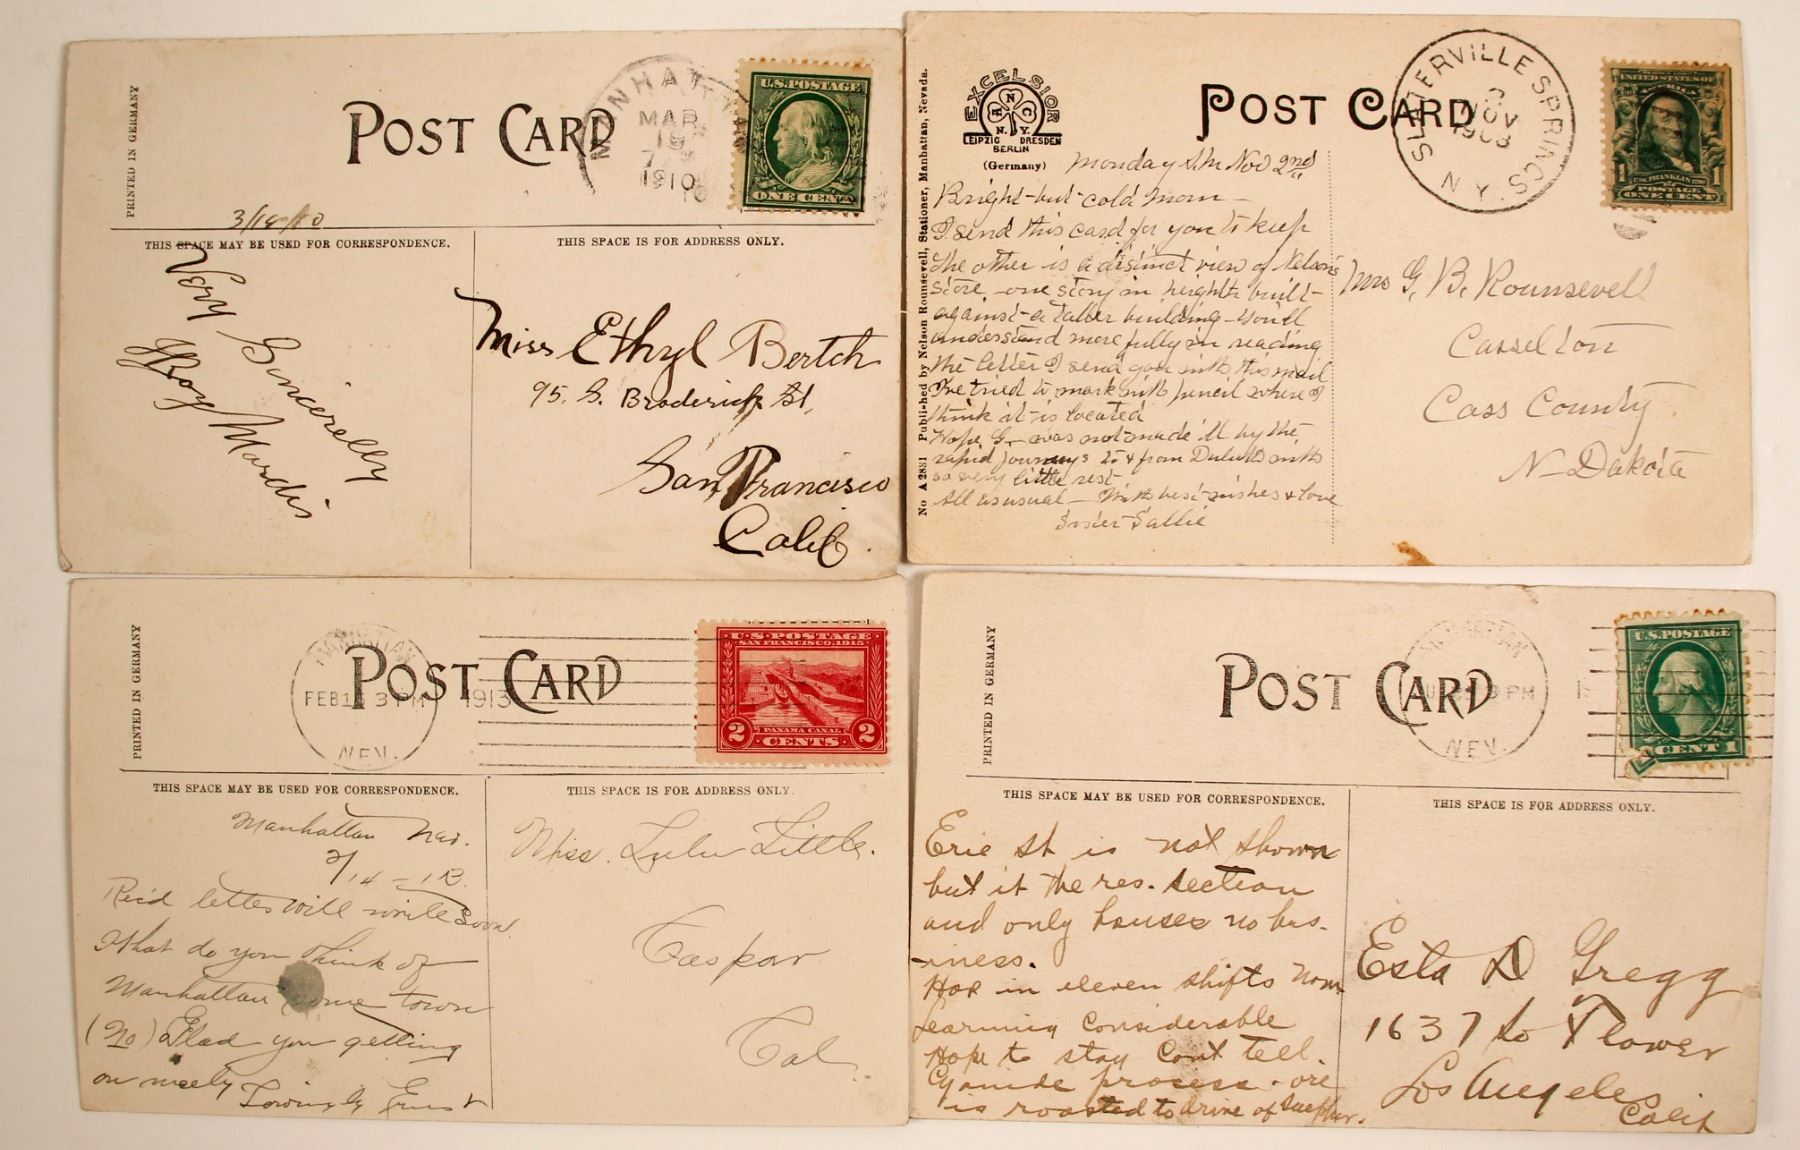 PRINTED IN GERMANY
POST CARD
MANHATT
MAR
19
1910
U.S. POSTAGE
ONE CENT
3/18/10
THIS SPACE MAY BE USED FOR CORRESPONDENCE.
THIS SPACE IS FOR ADDRESS ONLY.
Very Sincerelly
Roy Mardis
Miss Ethyl Bertch
95. S. Broderick St,
San Francisco
Calif.
No A 2881 Published by Nelson Rounsevell, Stationer, Manhattan, Nevada.
EXCELSIOR
N.Y.
LEIPZIG DRESDEN
BERLIN
(Germany)
POST CARD
SLATERVILLE SPRINGS
NOV
N.Y.
UNITED STATES OF
AMERICA
1 FRANKLIN 1
POSTAGE
ONE CENT
Monday Nov 2nd
Bright-but-cold morn-
I send this card for you to keep
the other is a distinct view of Nelson's
store - one story in heighth built-
against-a taller building - You'll
understand more fully on reading
the letter I send you with this mail
I've tried to mark with pencil where I
think it-is located
Hope G- was not made ill by the
rapid journeys to & from Duluth with
so very little rest-
All as usual - With best-wishes & love
Sister Sallie
Mrs G. B. Rounsevell
Casselton
Cass County
N- Dakota
PRINTED IN GERMANY
POST CARD
MANHATTAN
FEB 1 3 PM 1913
NEV.
U.S. POSTAGE
SAN FRANCISCO, 1915
PANAMA CANAL
2 CENTS 2
THIS SPACE MAY BE USED FOR CORRESPONDENCE.
THIS SPACE IS FOR ADDRESS ONLY.
Manhattan Nev.
2/14 - 13.
Rec'd letter will write soon.
What do you think of
Manhattan some town
(No) Glad you getting
on nicely
Lovingly Ernest
Miss. Lulu Little.
Caspar
Cal.
PRINTED IN GERMANY
POST CARD
3 PM
NEV.
U.S. POSTAGE
CENT 1
THIS SPACE MAY BE USED FOR CORRESPONDENCE.
THIS SPACE IS FOR ADDRESS ONLY.
Erie St is not shown
but it the res. section
and only houses no bus-
-iness.
Hav in eleven shifts now
Learning considerable
Hope to stay Cant tell.
Cyanide process - ore
is roasted to drive of Sulphur.
Esta D Gregg
1637 So Flower
Los Angeles
Calif